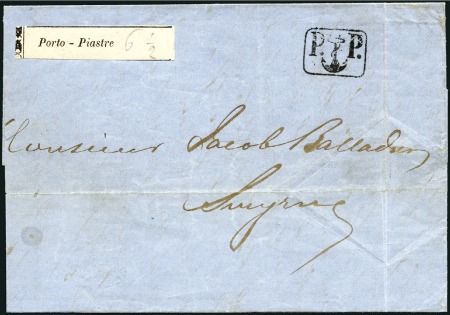 Porto - Piastre 6 1/2
P. P.
Monsieur Jacob Balladur
Smyrne